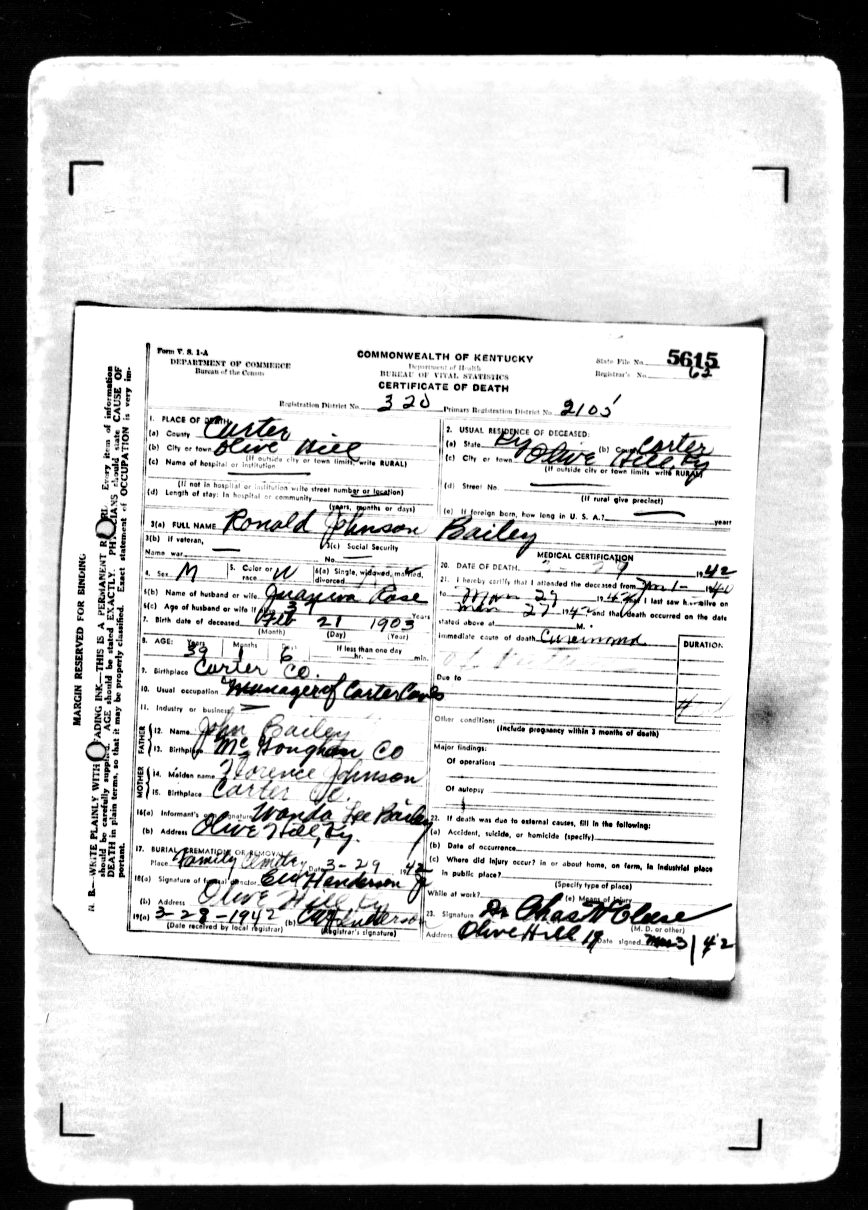 Form V. S. 1-A
DEPARTMENT OF COMMERCE
Bureau of the Census
COMMONWEALTH OF KENTUCKY
Department of Health
BUREAU OF VITAL STATISTICS
CERTIFICATE OF DEATH
State File No. 5615
Registrar's No. 62
Registration District No. 320 Primary Registration District No. 2105
MARGIN RESERVED FOR BINDING
N. B.—WRITE PLAINLY WITH FADING INK—THIS IS A PERMANENT Every item of information
should be carefully supplied. AGE should be stated EXACTLY. should state CAUSE OF
DEATH in plain terms, so that it may be properly classified. Exact statement of OCCUPATION is very im-
portant.
1. PLACE OF DEATH
(a) County Carter
(b) City or town Olive Hill
(If outside city or town limits, write RURAL)
(c) Name of hospital or institution
(If not in hospital or institution write street number or location)
(d) Length of stay: In hospital or community
(years, months or days)
2. USUAL RESIDENCE OF DECEASED:
(a) State Ky (b) County Carter
(c) City or town Olive Hill, Ky
(If outside city or town limits write RURAL)
(d) Street No.
(If rural give precinct)
(e) If foreign born, how long in U. S. A.? years
3(a) FULL NAME Ronald Johnson Bailey
3(b) If veteran,
Name war
3(c) Social Security
No.
4. Sex M 5. Color or race W 6(a) Single, widowed, married, divorced
6(b) Name of husband or wife Rose
6(c) Age of husband or wife if alive Years
7. Birth date of deceased Feb 21 1903
(Month) (Day) (Year)
8. AGE: Years 39 Months 1 Days 6 If less than one day
hr. min.
9. Birthplace Carter Co.
10. Usual occupation Manager of Carter Caves
11. Industry or business
FATHER
12. Name John Bailey
13. Birthplace Co
MOTHER
14. Maiden name Florence Johnson
15. Birthplace Carter Co.
16(a) Informant's signature Wanda Lee Bailey
(b) Address Olive Hill, Ky.
17. BURIAL, CREMATION OR REMOVAL
Place Family Date 3-29 1942
18(a) Signature of funeral director Henderson Jr
(b) Address Olive Hill Ky
19(a) 3-28-1942 (b) Henderson
(Date received by local registrar) (Registrar's signature)
MEDICAL CERTIFICATION
20. DATE OF DEATH 1942
21. I hereby certify that I attended the deceased from
to 27 1942 that I last saw h alive on
27 1942 and that death occurred on the date
stated above at M.
Immediate cause of death
DURATION
Due to
Other conditions
(Include pregnancy within 3 months of death)
Major findings:
Of operations
Of autopsy
22. If death was due to external causes, fill in the following:
(a) Accident, suicide, or homicide (specify)
(b) Date of occurrence
(c) Where did injury occur? in or about home, on farm, in industrial place
in public place?
(Specify type of place)
While at work? (e) Means of Injury
23. Signature Dr Chas W
(M. D. or other)
Address Olive Hill Date signed 42